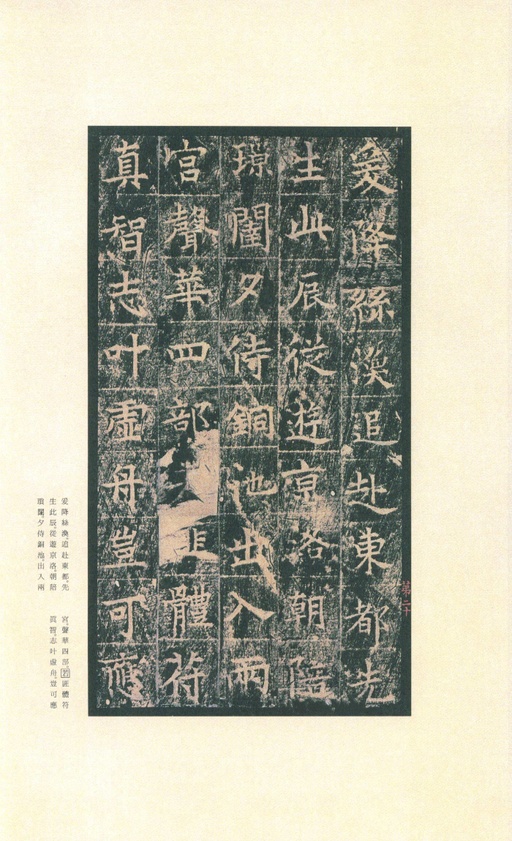 爰降絲渙追赴東都先
生此辰從遊京洛朝陪
瓊夕侍銅池出入兩
宮聲華四部匪體符
真智志叶虛舟豈可應
爰降絲渙追赴東都先
生此辰從遊京洛朝陪
瓊夕侍銅池出入兩
宮聲華四部若匪體符
眞智志叶虛舟豈可應